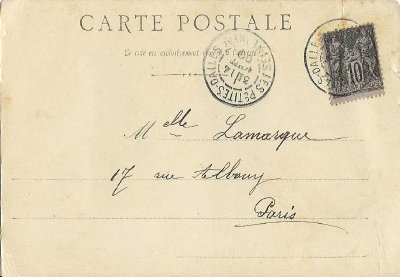 CARTE POSTALE
Ce côté est exclusivement réservé à l'adresse
LES PETITES-DALLES
10
Melle Lamarque
17 rue Albouy
Paris